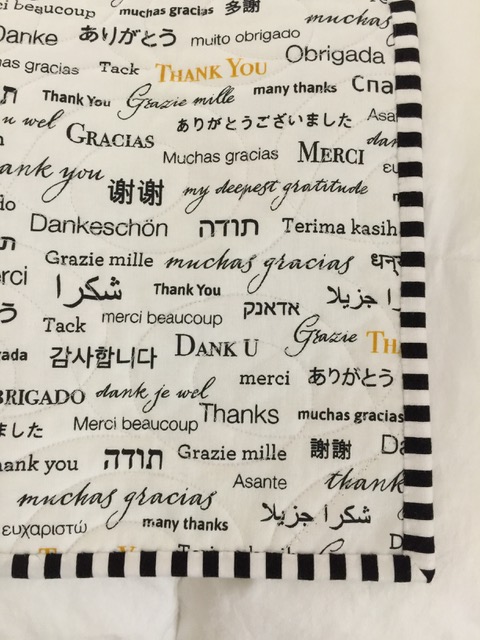 beaucoup muchas gracias 多謝
muchas
Danke ありがとう muito obrigado
Obrigada
gracias Tack THANK YOU
Thank You Grazie mille many thanks
u wel GRACIAS ありがとうございました
Muchas gracias MERCI
ank you 谢谢 my deepest gratitude
Dankeschön תודה Terima kasih
Grazie mille muchas gracias
شكرا Thank You جزيلا
Tack merci beaucoup אדאנק
Grazie
감사합니다 DANK U
merci ありがとう
BRIGADO dank je wel
Merci beaucoup Thanks muchas gracias
ました
ank you תודה Grazie mille 謝謝
Asante thank
muchas gracias شكرا جزيلا
ευχαριστώ many thanks